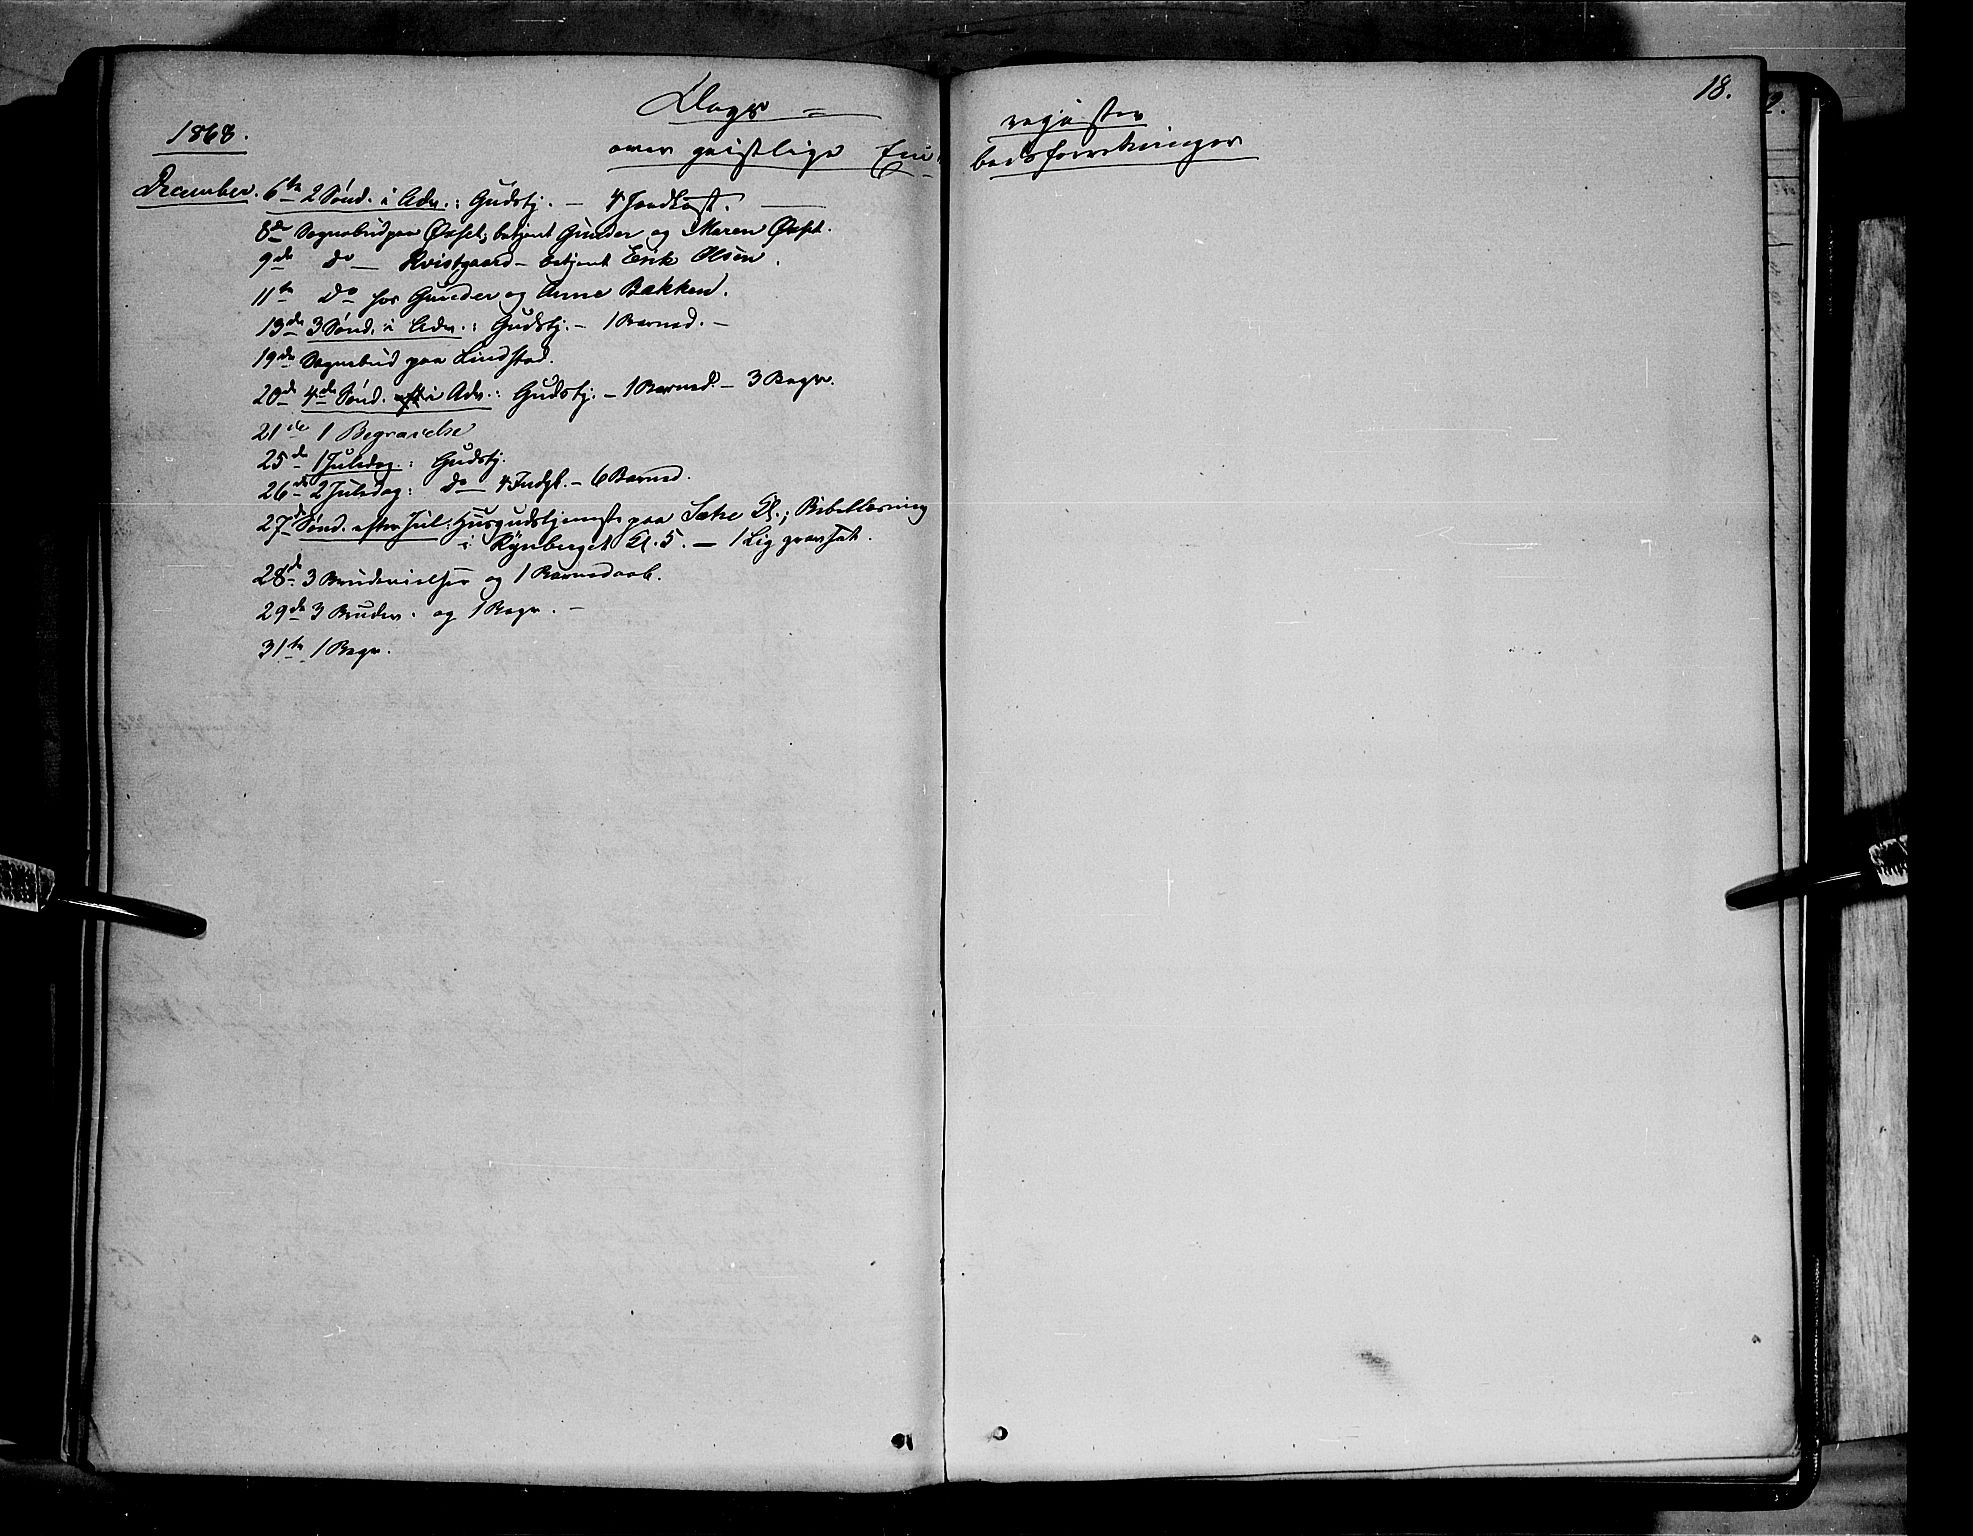 18.
1868.
Dags = register
over geistlige Embedsforretninger
December. 6te 2 Sønd. i Adv.: Gudstj. —
8de Sognebud paa Øxset; betjent Gunder og Maren Øxset.
9de Do — Kvistgaard — betjent Erik Olsen.
11te Do hos Gunder og Anne Bakken.
13de 3 Sønd. i Adv.: Gudstj. — 1 Barned. —
19de Sognebud paa Lindstad.
20de 4de Sønd. i Adv.: Gudstj. — 1 Barned. — 3 Begr.
21de 1 Begravelse
25de 1 Juledag.: Gudstj.
26de 2 Juledag: Do — 4 Indgl. — 6 Barned.
27de Sønd. efter Jul. Husgudstjeneste paa Sætre Kl.; Bibellæsning
i Rynberget Kl. 5. — 1 Lig gravsat.
28de 3 Brudevielser og 1 Barnedaab.
29de 3 Brudev. og 1 Begr. —
31te 1 Begr.